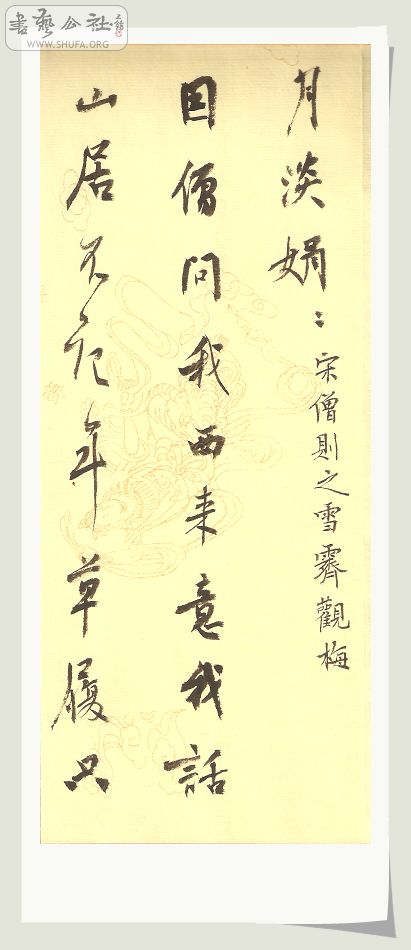 書藝公社
WWW.SHUFA.ORG
月淡娟〻
宋僧則之雪霽觀梅
因僧問我西来意我話
山居不記年草履只